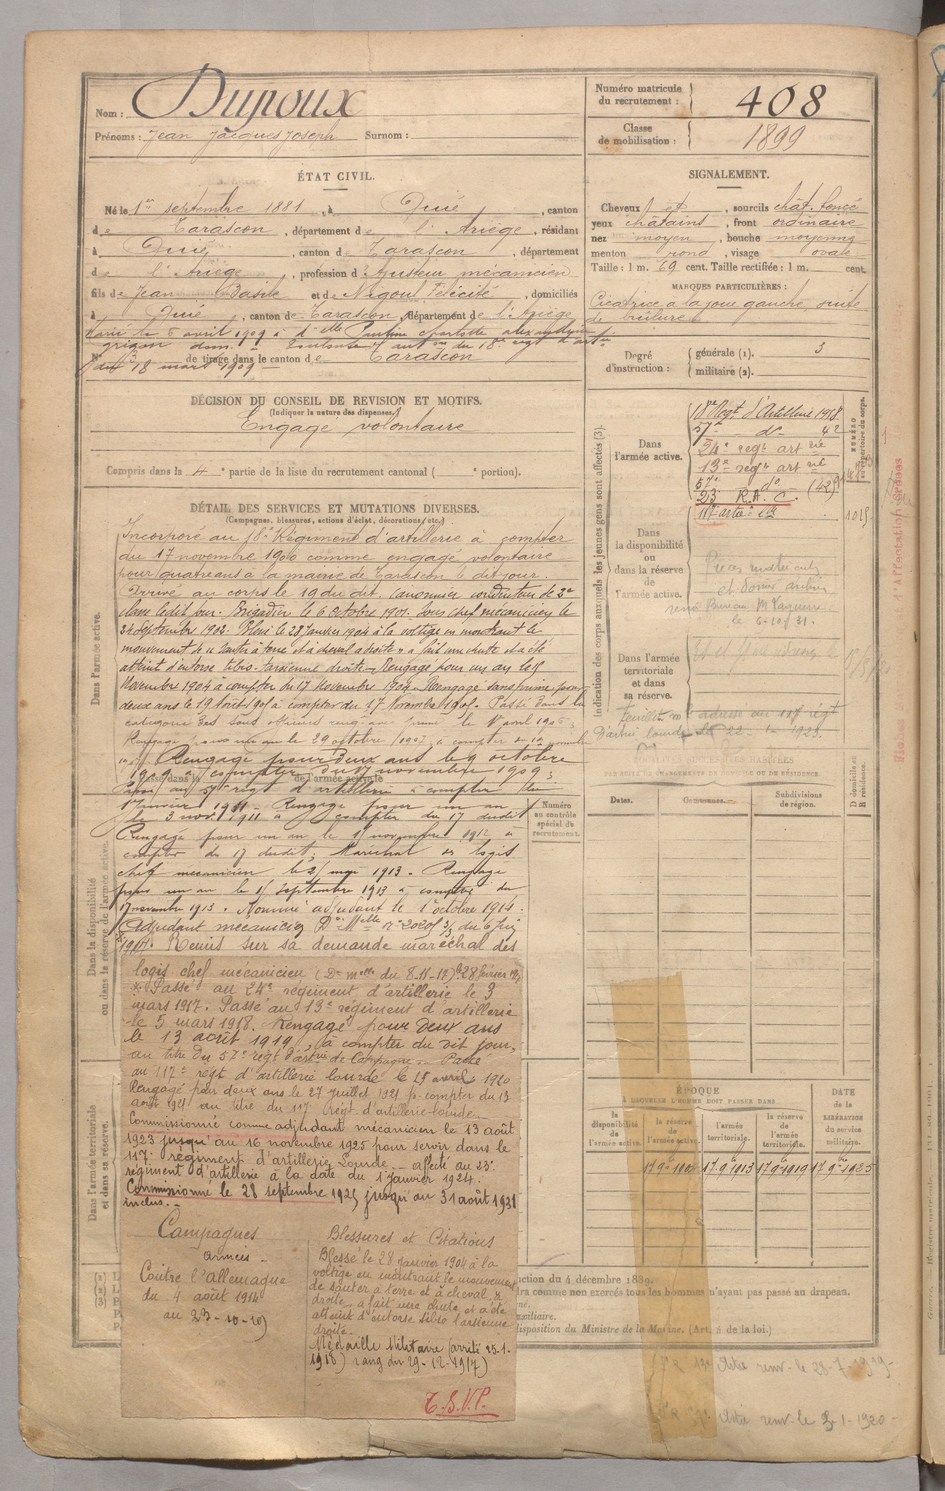 Nom : Dupoux
Prénoms : Jean Jacques Joseph Surnom :
Numéro matricule du recrutement : 408
Classe de mobilisation : 1899
ÉTAT CIVIL.
Né le 1er septembre 1881, à Quié, canton
de Tarascon, département de l'Ariège, résidant
à Quié, canton de Tarascon, département
de l'Ariège, profession d'Ajusteur mécanicien
fils de Jean Basile et de Nigoul Félicité, domiciliés
à Quié, canton de Tarascon, département de l'Ariège
avril 1909 à dlle Pauline Charlotte
dom. Toulouse aut. du 18e regt d'artie
du 18 mars 1909
N° 3 de tirage dans le canton de Tarascon
SIGNALEMENT.
Cheveux, sourcils chat. foncé
yeux châtains, front ordinaire
nez moyen, bouche moyenne
menton rond, visage ovale
Taille : 1 m. 69 cent. Taille rectifiée : 1 m. cent.
MARQUES PARTICULIÈRES :
Cicatrice à la joue gauche, suite
de brûlure
Degré d'instruction : générale (1). 3
militaire (2).
DÉCISION DU CONSEIL DE REVISION ET MOTIFS.
(Indiquer la nature des dispenses.)
Engagé volontaire
Compris dans la 4e partie de la liste du recrutement cantonal ( e portion).
DÉTAIL DES SERVICES ET MUTATIONS DIVERSES.
(Campagnes, blessures, actions d'éclat, décorations, etc.)
Dans l'armée active.
Incorporé au 18e Régiment d'artillerie à compter
du 17 novembre 1900 comme engagé volontaire
pour quatre ans à la mairie de Tarascon le dit jour.
Arrivé au corps le 19 du dit. Canonnier conducteur de 2e
classe le dit jour. Brigadier le 6 octobre 1901. Sous chef mécanicien le
24 Septembre 1902. Blessé le 28 Janvier 1904 à la voltige en montrant le
mouvement de sauter à terre et à cheval à droite, a fait une chute et a été
atteint d'entorse tibio-tarsienne droite. Rengagé pour un an le
Novembre 1904 à compter du 17 Novembre 1904. Rengagé sans prime pour
deux ans le 19 Août 1905 à compter du 17 Novembre 1905. Passé dans la
catégorie des sous officiers le 1er avril 1906.
Rengagé pour un an le 29 octobre 1907 à compter du 17 novembre
Rengagé pour deux ans le 9 octobre
1909 à compter du 17 novembre 1909.
Passé au 57e régt d'artillerie à compter du
1er Janvier 1911. Rengagé pour un an
le 3 nov. 1911 à compter du 17 dudit
Rengagé pour un an le novembre 1912 à
compter du 17 dudit. Maréchal des logis
chef mécanicien le 21 mai 1913. Rengagé
pour un an le 11 septembre 1913 à compter du
17 novembre 1913. Nommé adjudant le 1er octobre 1914.
Adjudant mécanicien Don Melle n° 20205 3/3 du 6
Remis sur sa demande maréchal des
logis chef mécanicien (Don melle du 8-11-13) 28 février
Passé au 24e régiment d'artillerie le 3
mars 1917. Passé au 13e régiment d'artillerie
le 5 mars 1918. Rengagé pour deux ans
le 13 août 1919, à compter du dit jour,
au titre du 57e régt d'artie de Campagne. Passé
au 117e régt d'artillerie lourde le 25 avril 1920
Rengagé pour deux ans le 27 juillet 1921 p. compter du 13
août 1921 au titre du 117e régt d'artillerie lourde.
Commissionné comme adjudant mécanicien le 13 août
1923 jusqu'au 16 novembre 1925 pour servir dans le
117e régiment d'artillerie Lourde. affecté au 23e
régiment d'artillerie à la date du 1er janvier 1924.
Commissionné le 28 septembre 1925 jusqu'au 31 août 1931
inclus.
Campagnes
armées
Contre l'allemagne
du 4 août 1914
au 23-10-19
Blessures et Citations
Blessé le 28 janvier 1904 à la
voltige en montrant le mouvement
de sauter à terre et à cheval, à
droite, a fait une chute et a été
atteint d'entorse tibio tarsienne
droite.
Médaille Militaire (arrêté 25-1-
1918) rang du 29-12-1917)
T.S.V.P.
Dans la disponibilité ou dans la réserve de l'armée active.
Dans l'armée territoriale et dans sa réserve.
Numéro au contrôle spécial du recrutement.
Indication des corps auxquels les jeunes gens sont affectés (3).
Dans l'armée active.
18e Régt. d'Artillerie 1958
57e do 42
24e regt artrie
13e regt artrie
57e do (42)
23 R.A.C.
117 artie
1015
NUMÉRO au répertoire du corps.
Dans la disponibilité ou dans la réserve de l'armée active.
Pièces
le 6-10-31.
Dans l'armée territoriale et dans sa réserve.
Feuillet m adressé au 117 régt
d'artie lourde le 22-1-1923.
Dates.
Communes.
Subdivisions de région.
D domicile ou R résidence.
ÉPOQUE
À LAQUELLE L'HOMME DOIT PASSER DANS
la disponibilité de l'armée active.
la réserve de l'armée active.
l'armée territoriale.
la réserve de l'armée territoriale.
DATE de la LIBÉRATION du service militaire.
17 9bre 1904 17 9bre 1913 17 9bre 1919 17 9bre 1925
ction du 4 décembre 1889.
ra comme non exercés tous les hommes n'ayant pas passé au drapeau.
uxiliaire.
disposition du Ministre de la Marine. (Art. 4 de la loi.)
Artie renv. le 28-7-1919
Artie renv. le 1-1920